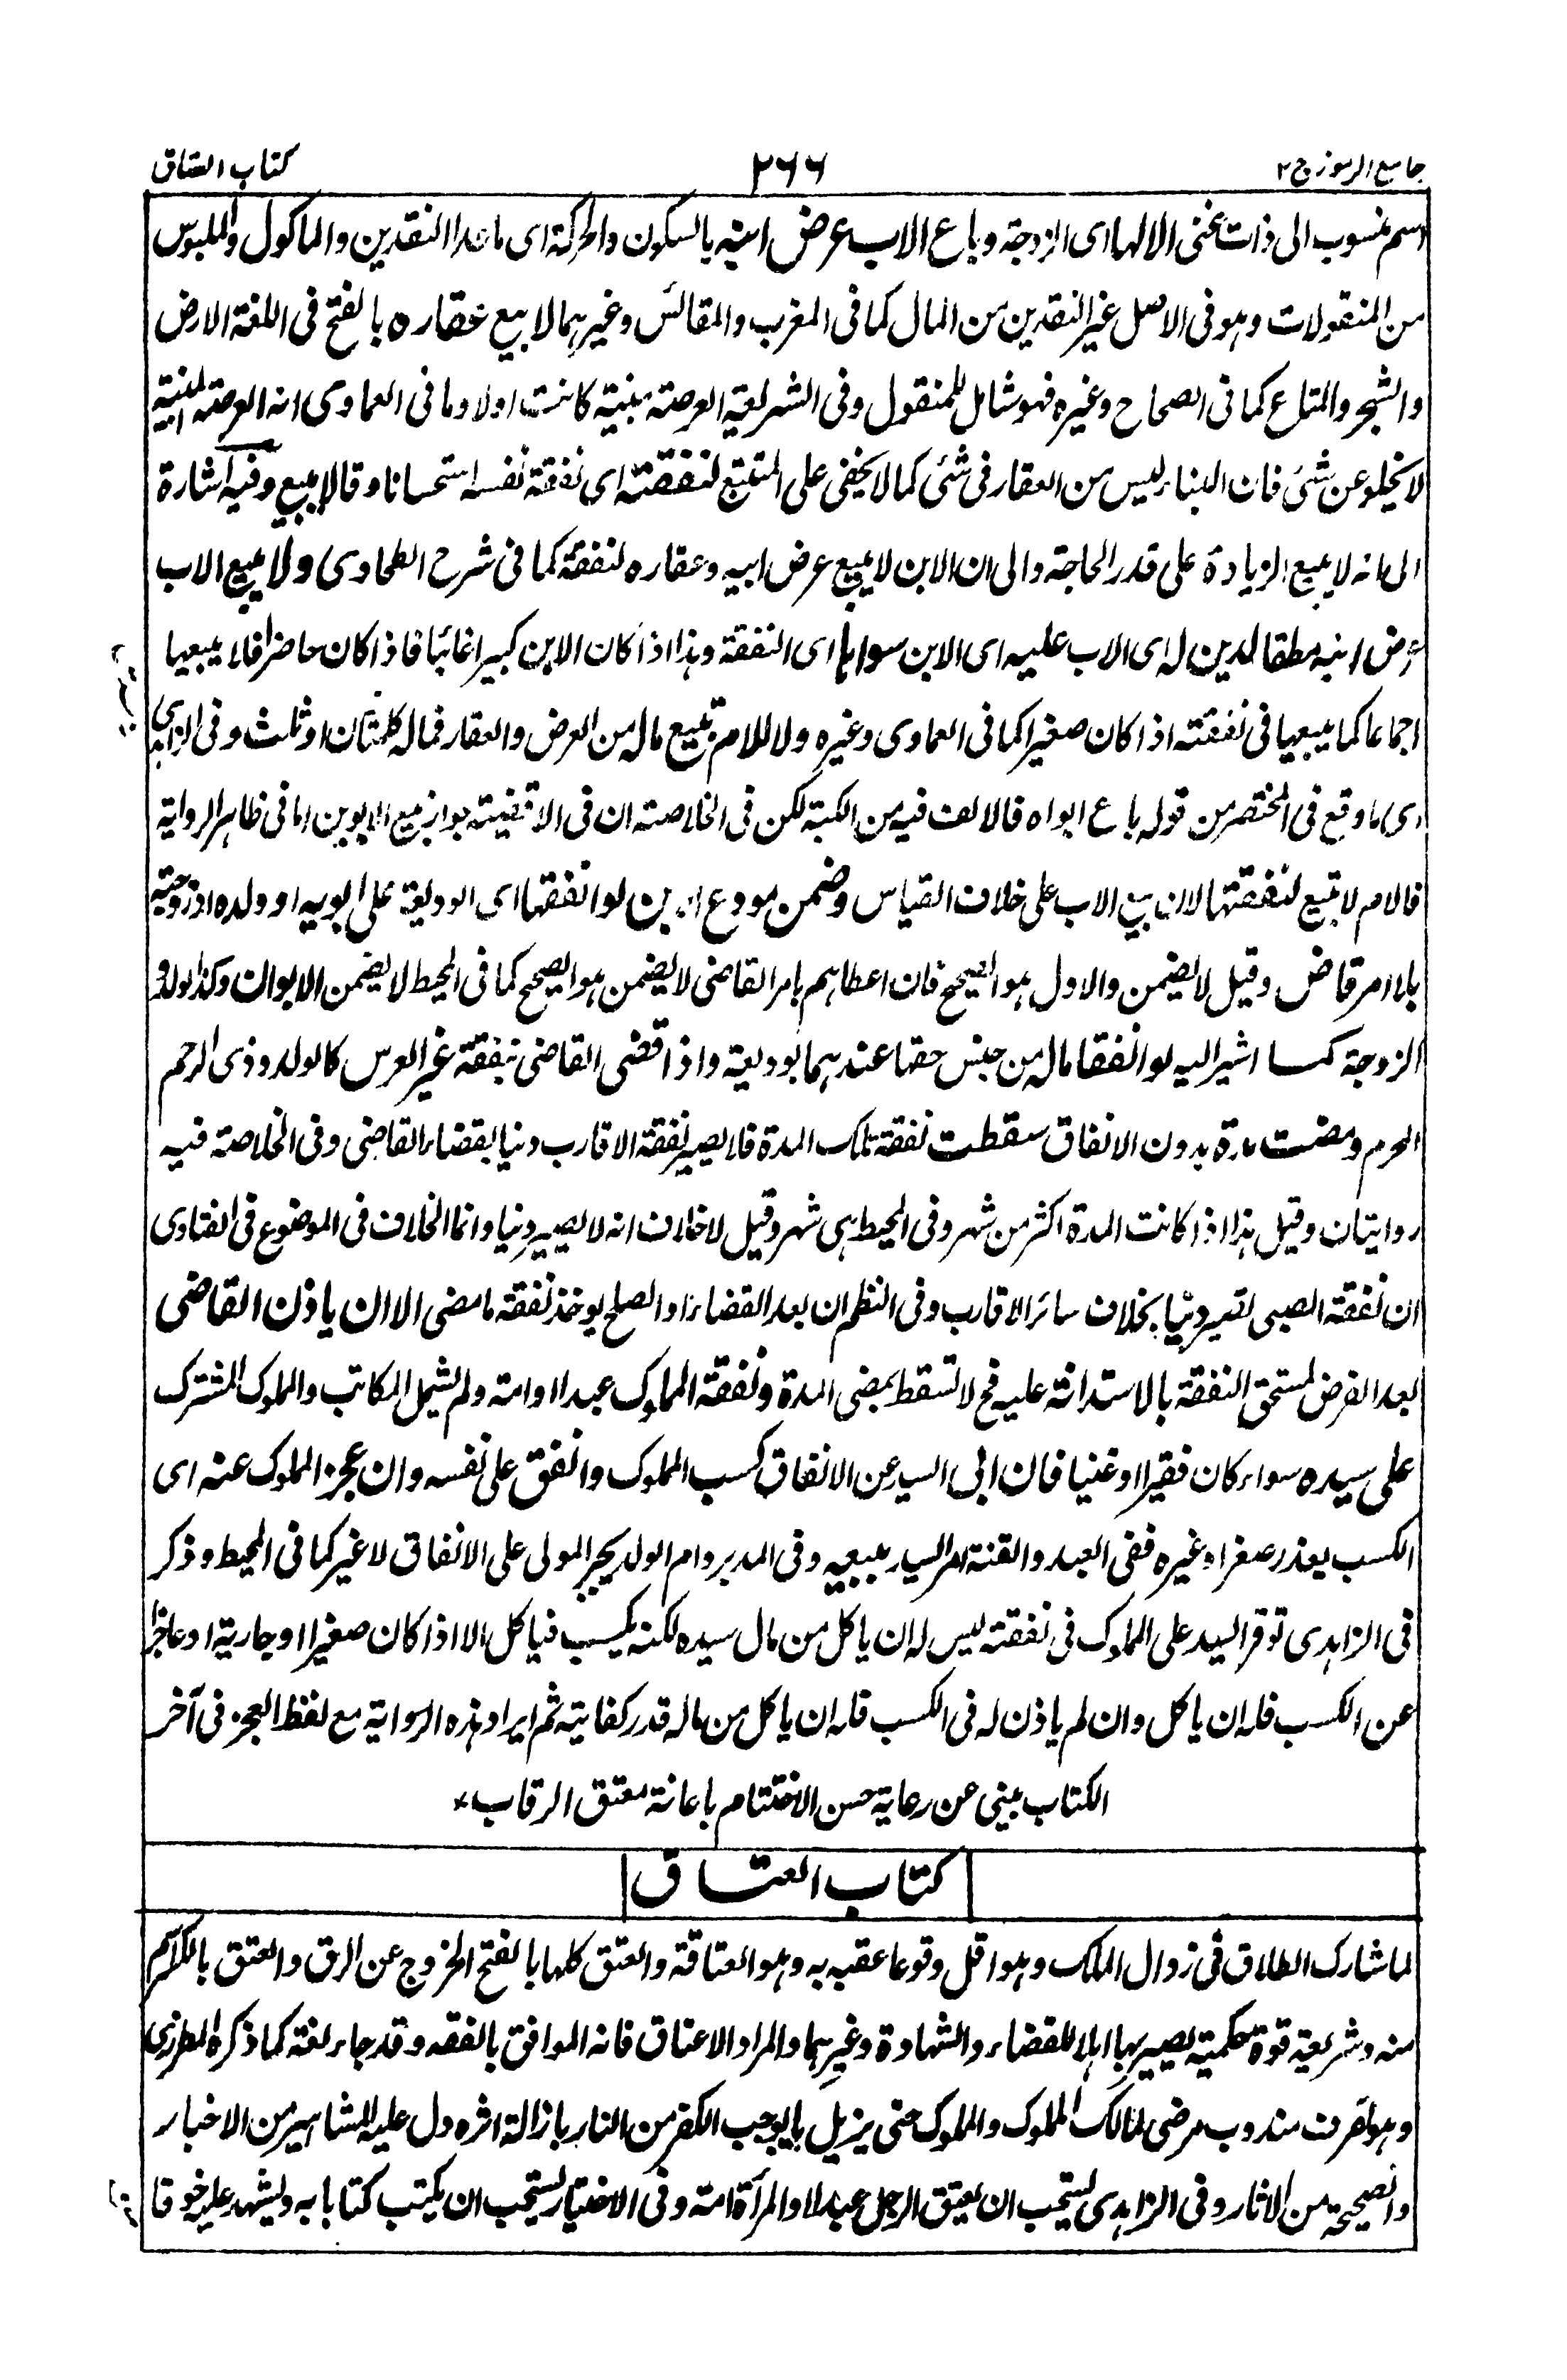 جامع الرموز ج ٢
٢٦٦
كتاب العتاق
اسم منسوب الى ذات بمعنى الا لها اى الزوجة وباع الاب عرض ابنه بالسكون والحركة اى ما عدا النقدين والماكول والملبوس
من المنقولات وهو فى الاصل غير النقدين من المال كما فى المغرب والمقائس وغيرهما لا يبيع عقاره بالفتح فى اللغة الارض
والشجر والمتاع كما فى الصحاح وغيره فهو شامل للمنقول وفى الشريعة العرصة مبنية كانت اولا وما فى العمادى انه العرصة المبنية
لا يخلو عن شئ فان البناء ليس من العقار فى شئ كما لا يخفى على المتتبع لنفقته اى نفقة نفسه استحسانا وقالا لا يبيع وفيه اشارة
الى انه لا يبيع الزيادة على قدر الحاجة والى ان الابن لا يبيع عرض ابيه وعقاره لنفقته كما فى شرح الطحاوى ولا يبيع الاب
عرض ابنه مطلقا لدين له اى الاب عليه اى الابن سواها اى النفقة وهذا اذا كان الابن كبيرا غائبا فاذا كان حاضرا فلا يبيعها
اجماعا كما يبيعها فى نفقته اذا كان صغيرا كما فى العمادى وغيره ولا للام تبيع ماله من العرض والعقار فماله كلمتان او ثلث وفى الزاهدى
اى ما وقع فى المختصر من قوله باع ابواه فالالف فيه من الكتبة لكن فى الخلاصة ان فى الاقضية جواز بيع الابوين اما فى ظاهر الرواية
فالام لا تبيع لنفقتها لان بيع الاب على خلاف القياس وضمن مودع ابن لو انفقها اى الوديعة على ابويه او ولده او زوجته
بلا امر قاض وقيل لا يضمن والاول هو الصحيح فان اعطاهم بامر القاضى لا يضمن هو الصحيح كما فى المحيط لا يضمن الابوان وكذا الولد و
الزوجة كما اشير اليه لو انفقا ماله من جنس حقها عندهما بوديعة واذا قضى القاضى بنفقة غير العرس كالولد وذى الرحم
المحرم ومضت مدة بدون الانفاق سقطت نفقة تلك المدة فلا يصير نفقة الاقارب دينا بقضاء القاضى وفى الخلاصة فيه
روايتان وقيل هذا اذا كانت المدة اكثر من شهر وفى المحيط هى شهر وقيل لا خلاف انه لا يصير دينا وانما الخلاف فى الموضوع فى الفتاوى
ان نفقة الصبى تصير دينا بخلاف سائر الاقارب وفى النظم ان بعد القضاء او الصلح يوخذ نفقة ما مضى الا ان ياذن القاضى
بعد الفرض لمستحق النفقة بالاستدانة عليه فح لا تسقط بمضى المدة ونفقة المملوك عبدا او امة ولم يشمل المكاتب والمملوك المشترك
على سيده سواء كان فقيرا او غنيا فان ابى السيد عن الانفاق كسب المملوك وانفق على نفسه وان عجز المملوك عنه اى
الكسب بعذر صغر او غيره ففى العبد والقنة امر السيد ببيعه وفى المدبر وام الولد يجبر المولى على الانفاق لا غير كما فى المحيط وذكر
فى الزاهدى توقر السيد على المملوك فى نفقته ليس له ان ياكل من مال سيده لكنه يكسب فياكل الا اذا كان صغيرا او جارية او عاجزا
عن الكسب فله ان ياكل وان لم ياذن له فى الكسب فله ان ياكل من ماله قدر كفايته ثم ايراد هذه الرواية مع لفظ العجز فى آخر
الكتاب يبنى عن رعاية حسن الاختتام باعانة معتق الرقاب
كتاب العتاق
لما شارك الطلاق فى زوال الملك وهو اقل وقوعا عقبه به وهو العتاقة والعتق كلها بالفتح الخروج عن الرق والعتق بالكسر اسم
منه وشريعة قوة حكمية يصير بها اهلا للقضاء والشهادة وغيرهما والمراد الاعتاق فانه الموافق بالفقه وقد جاء لغة كما ذكره المطرزى
وهو تصرف مندوب مرضى لمالك المملوك والمملوك حتى يزيل ما يوجب الكفر من النار بازالة اثره دل عليه المشاهير من الاخبار
والصحيحة من الاثار وفى الزاهدى يستحب ان يعتق الرجل عبدا والمرأة امة وفى الاختيار يستحب ان يكتب كتابا به ويشهد عليه خوفا